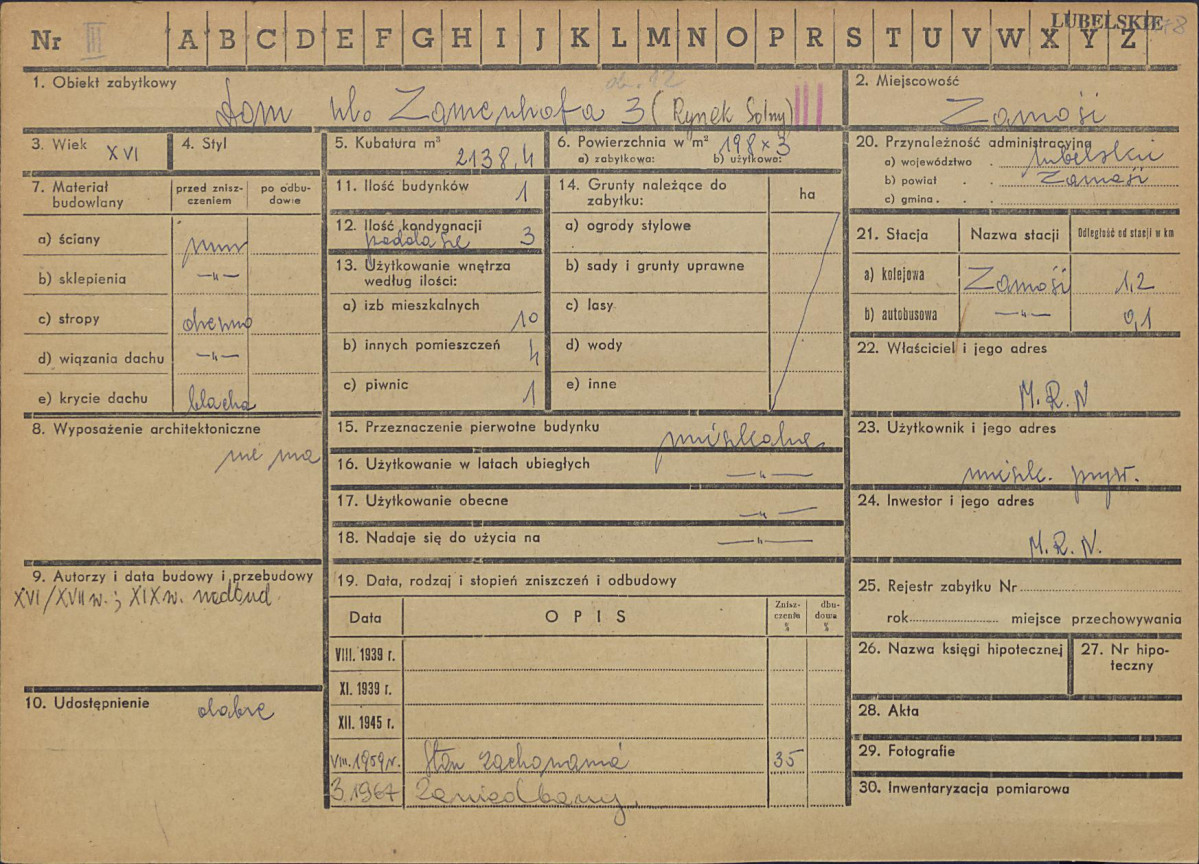 Nr III A B C D E F G H I J K L M N O P R S T U V W X Y Z LUBELSKIE 78
1. Obiekt zabytkowy
Dom ul. Zamenhofa 3 (Rynek Solny) III
2. Miejscowość
Zamość
3. Wiek XVI
4. Styl
5. Kubatura m³
2138,4
6. Powierzchnia w m² 198 x 3
a) zabytkowa: b) użytkowa:
20. Przynależność administracyjna
a) województwo lubelskie
b) powiat Zamość
c) gmina
7. Materiał budowlany
przed zniszczeniem
po odbudowie
a) ściany mur
b) sklepienia —"—
c) stropy drewno
d) wiązania dachu —"—
e) krycie dachu blacha
11. Ilość budynków 1
12. Ilość kondygnacji
poddasze 3
13. Użytkowanie wnętrza
według ilości:
a) izb mieszkalnych 10
b) innych pomieszczeń 4
c) piwnic 1
14. Grunty należące do
zabytku:
ha
a) ogrody stylowe
b) sady i grunty uprawne
c) lasy
d) wody
e) inne
21. Stacja Nazwa stacji Odległość od stacji w km
a) kolejowa Zamość 1,2
b) autobusowa —"— 0,1
22. Właściciel i jego adres
M.R.N
8. Wyposażenie architektoniczne
nie ma
15. Przeznaczenie pierwotne budynku mieszkalne
16. Użytkowanie w latach ubiegłych —"—
17. Użytkowanie obecne —"—
18. Nadaje się do użycia na —"—
23. Użytkownik i jego adres
mieszk. pryw.
24. Inwestor i jego adres
M.R.N.
9. Autorzy i data budowy i przebudowy
XVI/XVII w.; XIX w. nadbud.
10. Udostępnienie dobre
19. Data, rodzaj i stopień zniszczeń i odbudowy
Data OPIS Zniszczenia % dbudowa %
VIII. 1939 r.
XI. 1939 r.
XII. 1945 r.
VIII. 1959 r. Stan zachowania 35
3. 1967 Zaniedbany.
25. Rejestr zabytku Nr
rok miejsce przechowywania
26. Nazwa księgi hipotecznej
27. Nr hipoteczny
28. Akta
29. Fotografie
30. Inwentaryzacja pomiarowa